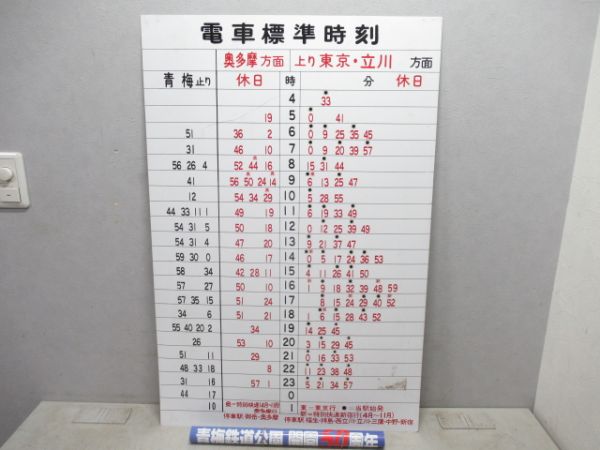 電車標準時刻
奥多摩方面 上り東京・立川 方面
青梅止り 休日 時 分 休日
4 33
19 5 0 41
51 36 2 6 0 9 25 35 45
31 46 10 7 0 9 20 39 57
56 26 4 52 44 16 8 15 31 44
41 56 50 24 14 9 6 13 25 47
12 54 34 29 10 5 28 55
44 33 11 1 49 19 11 6 19 33 49
54 31 5 50 18 12 0 12 25 39 49
54 31 4 47 20 13 9 21 37 47
59 30 0 46 17 14 0 5 17 24 36 53
58 34 42 28 11 15 4 11 26 41 50
57 27 50 10 16 1 9 18 32 39 48 59
57 35 15 51 24 17 8 15 24 29 40 52
34 6 51 21 18 1 6 15 28 43 52
55 40 20 2 34 19 14 25 45
26 53 10 20 3 15 29 45
51 11 29 21 0 16 33 53
48 33 18 8 22 11 23 38 48
31 16 57 1 23 5 21 34 57
44 17 0
10 1
東―東京行 ●―当駅始発
停車駅 御岳・奥多摩
青梅鉄道公園 開園 周年